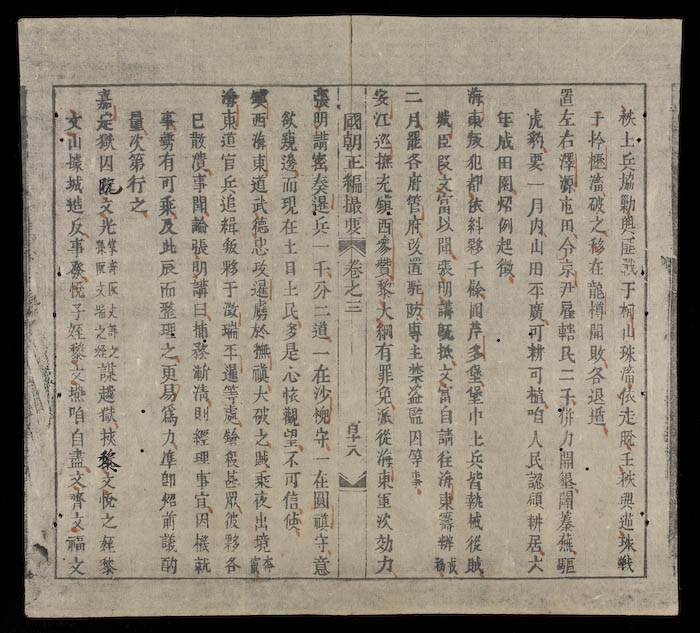 上兵協勦與匪戰于山珠依走脫挾興道珠戰
于於瀝破之移在龍樽開敗各退遁
置左右澤源屯田令京尹雇轄民二千併力開墾闢蓁蕪驅
虎豹要一月內山田平廣可耕可植咱人民認領耕居六
年成田園炤例起徵
海東叛犯都依糾夥千餘圓芹多堡堡中土兵皆執械從賊
城臣段文富以聞張明講文富自請往海東籌辦
二月罷各府管府改置駝防專主禁盜監囚等事
安江巡撫充鎮西參贊黎大綱有罪免派從海東軍次効力
國朝正編撮要 卷之三 百十八
張明講密奏暹兵一千分二道一在沙㮋守一在圓禛守意
欲窺邊而現在土目土民多是心懷觀望不可信使
鎮西海東道武德忠攻暹虜於撫禛大破之賊乘夜出境
海東道官兵追緝叛夥于澂瑞平暹等處鎗殺甚眾彼夥各
已散潰事聞諭張明講曰捕務漸清則經理事宜因機就
事勢有可乘及此辰而整理之更易爲力準卽炤前議酌
量次第行之
嘉定獄囚阮文光謀越獄挾黎文悅之姪黎
文山據城造反事發悅子姪黎文咱自盡文齊文福文